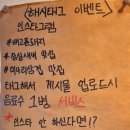 <해시태그 이벤트>
인스타그램
#
#잠실새내 맛집
맛집
태그해서 게시물 업로드시
음료수 1병 서비스
※인스타 안 하신다면!?